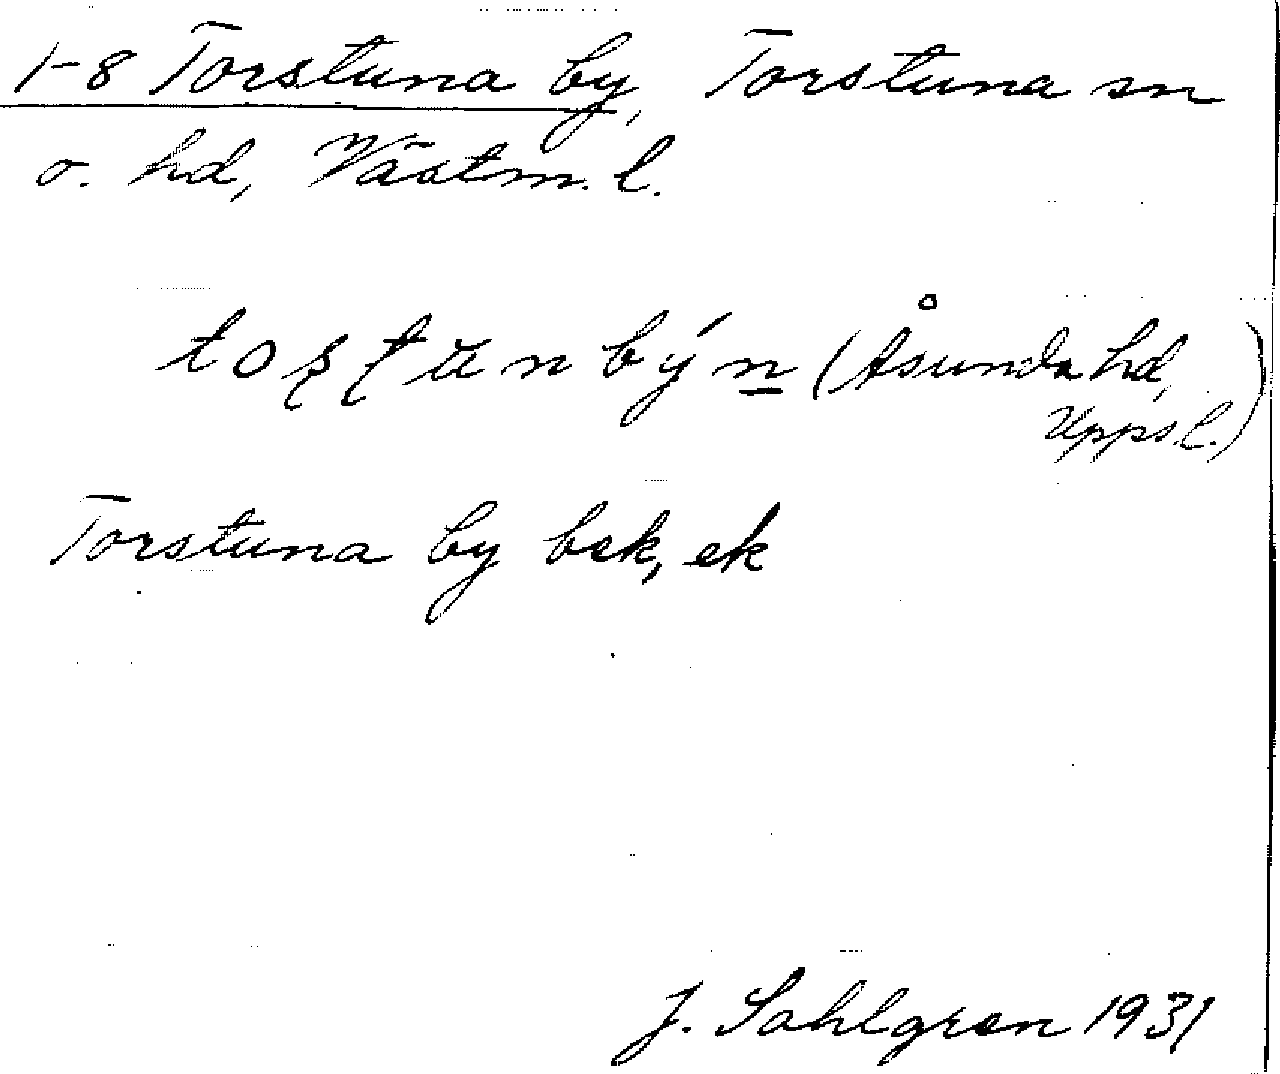 1-8 Torstuna by, Torstuna sn
o. hd, Västm. l.
toʂʈun býn (Åsunda hd,
Upps. l.)
Torstuna by bek, ek
J. Sahlgren 1931